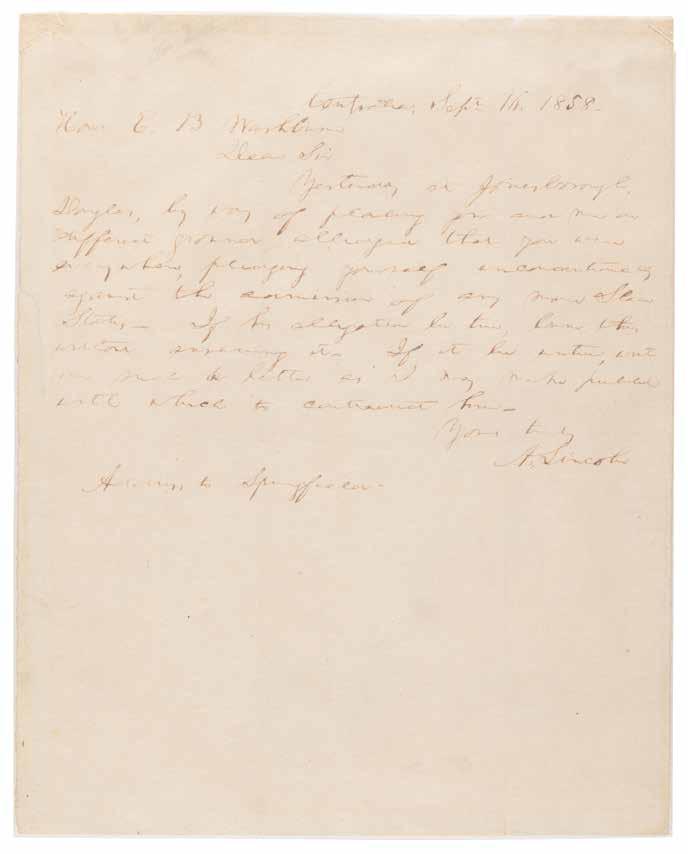 Centralia, Sept. 16. 1858.
Hon. E. B. Washburne
Dear Sir
Yesterday at Jonesborough,
Douglas, by way of placing you and me on
different grounds alleged that you were
everywhere, pledging yourself unconditionally
against the admission of any more Slave
States— If his allegation be true, leave this
without answering it— If it be untrue, write
me such a letter as I may make public
with which to contradict him—
Yours truly
A. Lincoln
Address to Springfield—